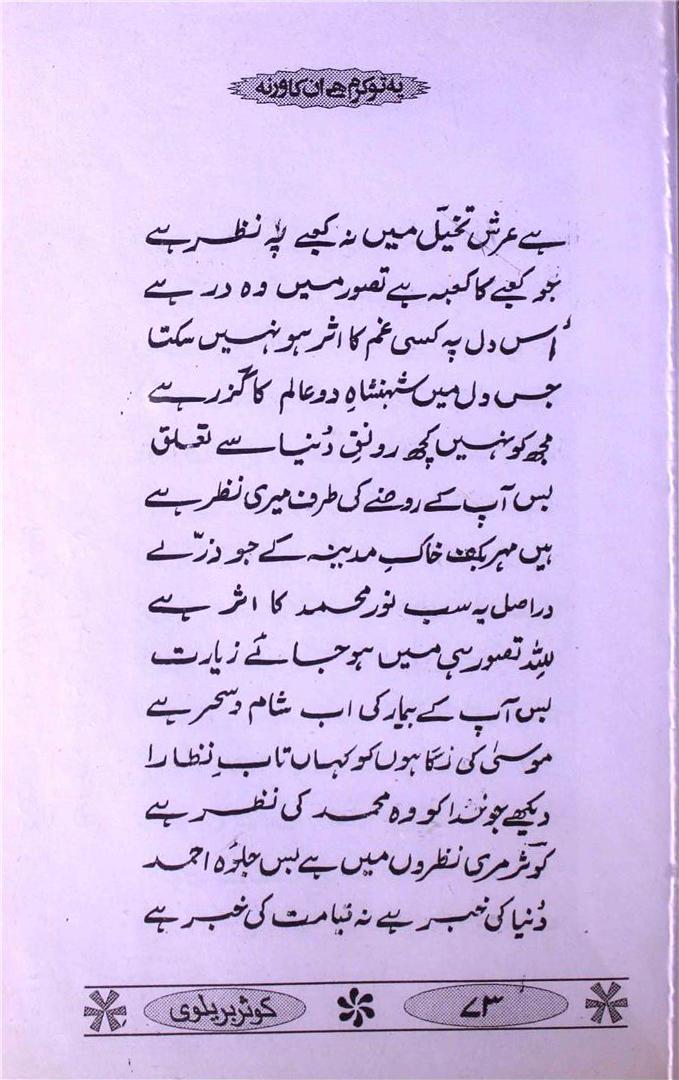 یہ تو کرم ہے ان کا ورنہ
ہے عرش تخیّل میں نہ کعبے پہ نظر ہے
جو کعبے کا کعبہ ہے تصور میں وہ در ہے
اُس دل پہ کسی غم کا اثر ہو نہیں سکتا
جس دل میں شہنشاہِ دو عالم کا گزر ہے
مجھ کو نہیں کچھ رونقِ دُنیا سے تعلق
بس آپ کے روضے کی طرف میری نظر ہے
ہیں مہر بکف خاکِ مدینہ کے جو ذرّے
دراصل یہ سب نور محمد کا اثر ہے
للِلہ تصور ہی میں ہو جائے زیارت
بس آپ کے بیمار کی اب شام و سحر ہے
موسیٰ کی نگاہوں کو کہاں تابِ نظارا
دیکھے جو خدا کو وہ محمد کی نظر ہے
کوثر مری نظروں میں ہے بس جلوۂ احمد
دُنیا کی خبر ہے نہ قیامت کی خبر ہے
۷۳
کوثر بریلوی